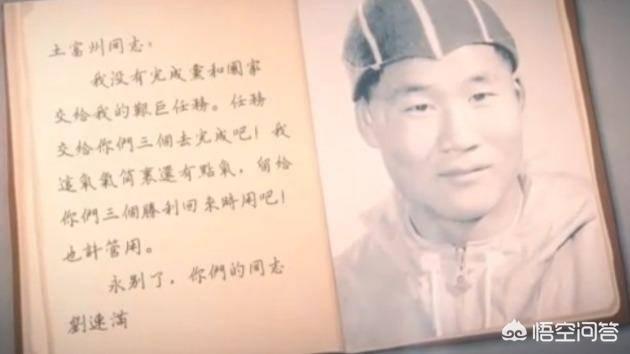 王富州同志：
我没有完成黨和國家
交給我的艱巨任務。任務
交給你們三個去完成吧！我
這氧氣筒裏還有點氧，留給
你們三個勝利回來時用吧！
也許管用。
永别了，你們的同志
劉連滿
悟空问答